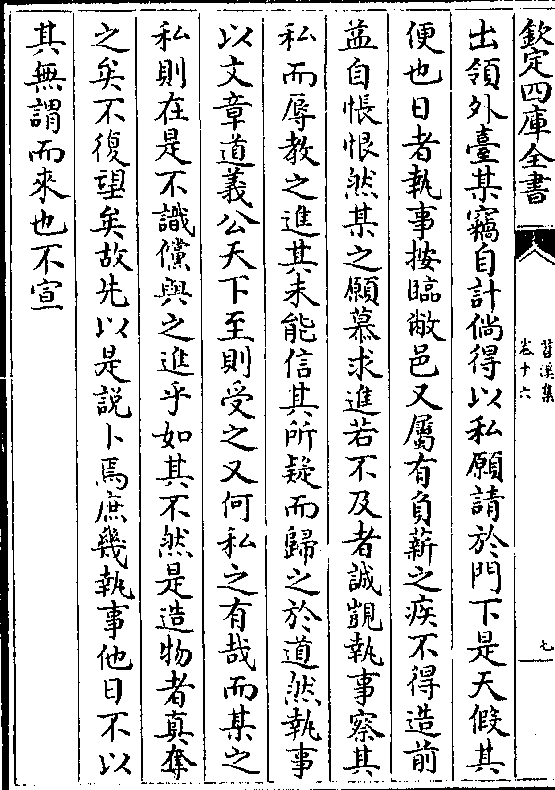 欽定四庫全書
苕溪集
卷十六
七
出領外臺某竊自計倘得以私願請於門下是天假其
便也日者執事按臨敝邑又屬有負薪之疾不得造前
益自悵恨然某之願慕求進若不及者誠覬執事察其
私而辱教之進其未能信其所疑而歸之於道然執事
以文章道義公天下至則受之又何私之有哉而某之
私則在是不識儻與之進乎如其不然是造物者真奪
之矣不復望矣故先以是説卜焉庶幾執事他日不以
其無謂而來也不宣